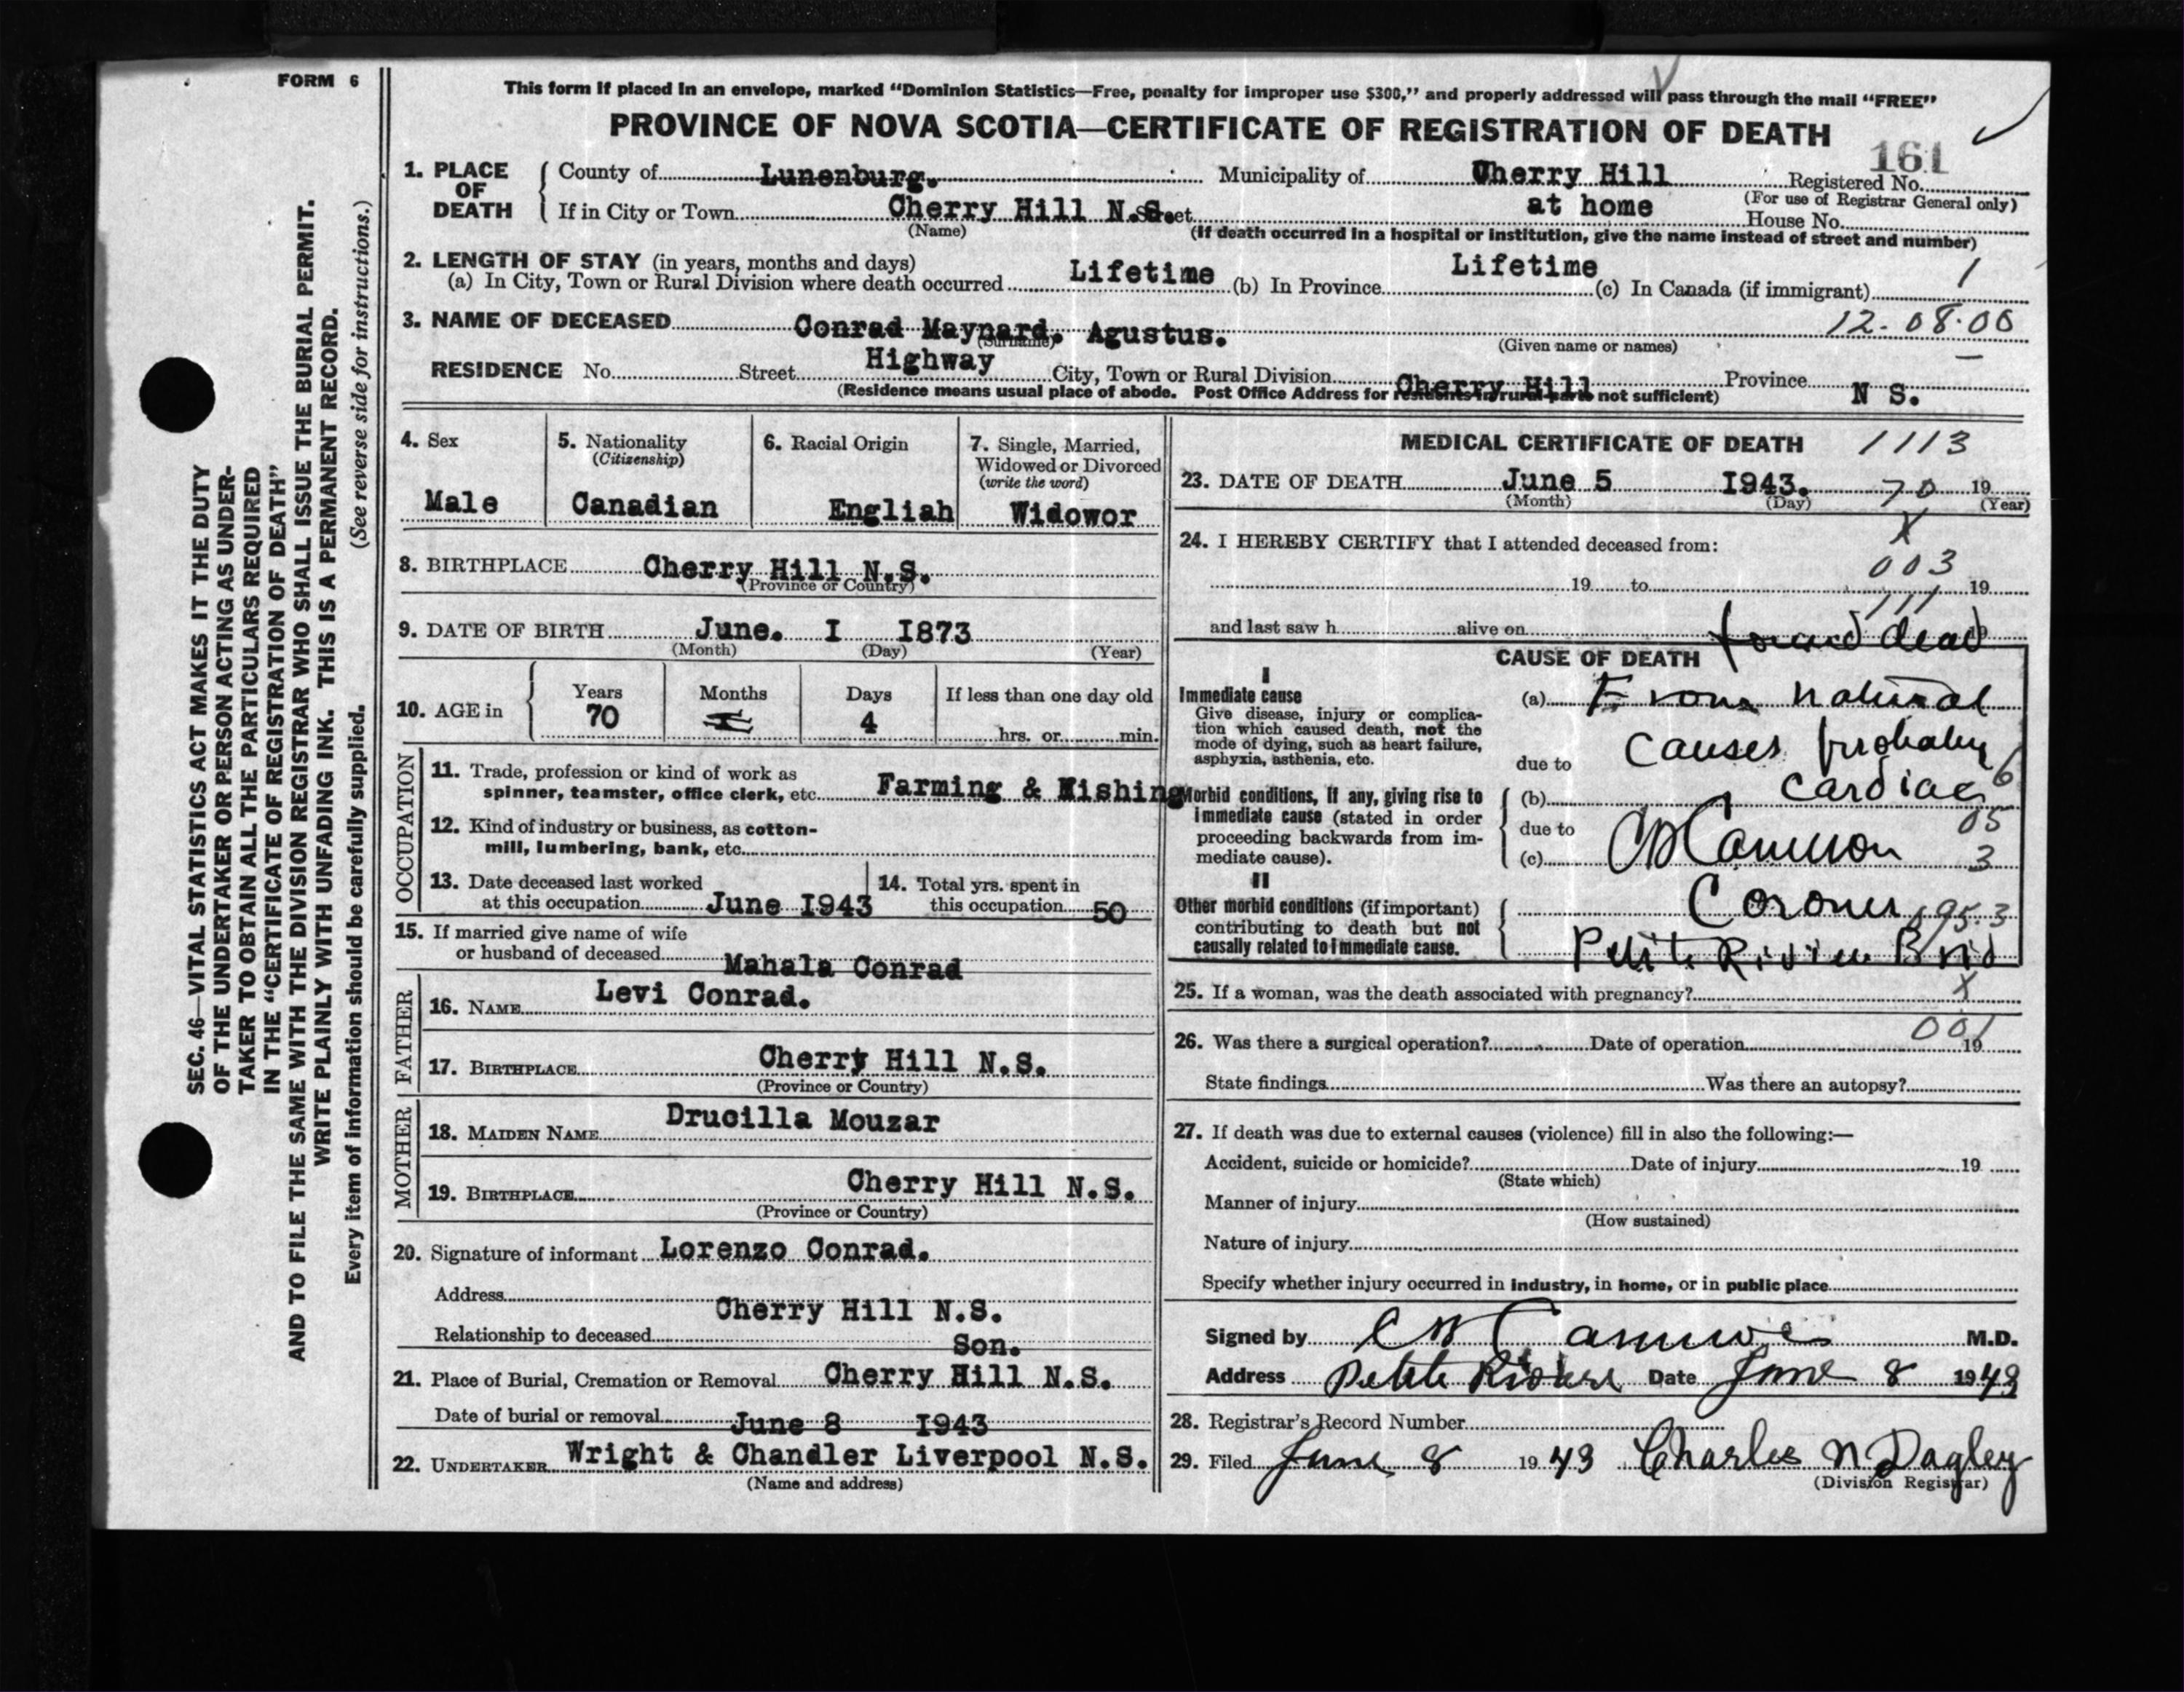 FORM 6
This form if placed in an envelope, marked "Dominion Statistics—Free, penalty for improper use $300," and properly addressed will pass through the mail "FREE"
PROVINCE OF NOVA SCOTIA—CERTIFICATE OF REGISTRATION OF DEATH
161
1. PLACE OF DEATH
County of Lunenburg. Municipality of Cherry Hill Registered No.
(For use of Registrar General only)
If in City or Town Cherry Hill N.S. Street at home House No.
(Name) (If death occurred in a hospital or institution, give the name instead of street and number)
2. LENGTH OF STAY (in years, months and days)
(a) In City, Town or Rural Division where death occurred Lifetime (b) In Province Lifetime (c) In Canada (if immigrant) 1
3. NAME OF DECEASED Conrad Maynard. Agustus. 12.08.00
(Surname) (Given name or names)
RESIDENCE No. Street Highway City, Town or Rural Division Cherry Hill Province N S.
(Residence means usual place of abode. Post Office Address for residents in rural parts not sufficient)
4. Sex
Male
5. Nationality
(Citizenship)
Canadian
6. Racial Origin
Engliah
7. Single, Married,
Widowed or Divorced
(write the word)
Widowor
8. BIRTHPLACE Cherry Hill N.S.
(Province or Country)
9. DATE OF BIRTH June. I I873
(Month) (Day) (Year)
10. AGE in
Years Months Days If less than one day old
70 4 hrs. or min.
OCCUPATION
11. Trade, profession or kind of work as
spinner, teamster, office clerk, etc. Farming & Fishing
12. Kind of industry or business, as cotton-
mill, lumbering, bank, etc.
13. Date deceased last worked
at this occupation June I943
14. Total yrs. spent in
this occupation 50
15. If married give name of wife
or husband of deceased Mahala Conrad
FATHER
16. NAME Levi Conrad.
17. BIRTHPLACE Cherry Hill N.S.
(Province or Country)
MOTHER
18. MAIDEN NAME Drucilla Mouzar
19. BIRTHPLACE Cherry Hill N.S.
(Province or Country)
20. Signature of informant Lorenzo Conrad.
Address Cherry Hill N.S.
Relationship to deceased Son.
21. Place of Burial, Cremation or Removal Cherry Hill N.S.
Date of burial or removal June 8 I943
22. UNDERTAKER Wright & Chandler Liverpool N.S.
(Name and address)
MEDICAL CERTIFICATE OF DEATH 1113
23. DATE OF DEATH June 5 I943. 70 19
(Month) (Day) (Year)
X
24. I HEREBY CERTIFY that I attended deceased from:
003
19 to 19
111
and last saw h alive on found dead 19
CAUSE OF DEATH
I
Immediate cause
Give disease, injury or complica-
tion which caused death, not the
mode of dying, such as heart failure,
asphyxia, asthenia, etc.
(a) From natural
due to causes probably
Morbid conditions, if any, giving rise to
immediate cause (stated in order
proceeding backwards from im-
mediate cause).
(b) cardiac 6
due to 05
(c) CW Cameron 3
II
Other morbid conditions (if important)
contributing to death but not
causally related to immediate cause.
Coroner 195.3
Petite Riviere
25. If a woman, was the death associated with pregnancy? X
001
26. Was there a surgical operation? Date of operation 19
State findings Was there an autopsy?
27. If death was due to external causes (violence) fill in also the following:—
Accident, suicide or homicide? Date of injury 19
(State which)
Manner of injury
(How sustained)
Nature of injury
Specify whether injury occurred in industry, in home, or in public place
Signed by CW Cameron M.D.
Address Petite Riviere Date June 8 1943
28. Registrar's Record Number
29. Filed June 8 1943 Charles N Dagley
(Division Registrar)
SEC. 46—VITAL STATISTICS ACT MAKES IT THE DUTY
OF THE UNDERTAKER OR PERSON ACTING AS UNDER-
TAKER TO OBTAIN ALL THE PARTICULARS REQUIRED
IN THE "CERTIFICATE OF REGISTRATION OF DEATH"
AND TO FILE THE SAME WITH THE DIVISION REGISTRAR WHO SHALL ISSUE THE BURIAL PERMIT.
WRITE PLAINLY WITH UNFADING INK. THIS IS A PERMANENT RECORD.
Every item of information should be carefully supplied. (See reverse side for instructions.)